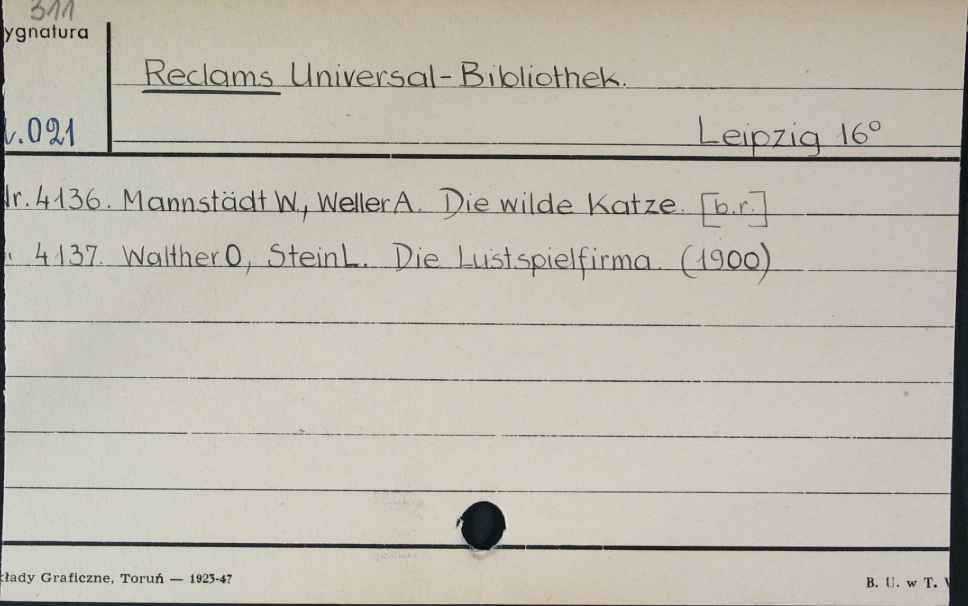 311
ygnatura
Reclams Universal-Bibliothek.
.021
Leipzig 16°
Nr. 4136. Mannstädt W., Weller A. Die wilde Katze. [b.r.]
" 4137. Walther O., Stein L. Die Lustspielfirma. (1900)
kłady Graficzne, Toruń — 1923-47
B. U. w T.